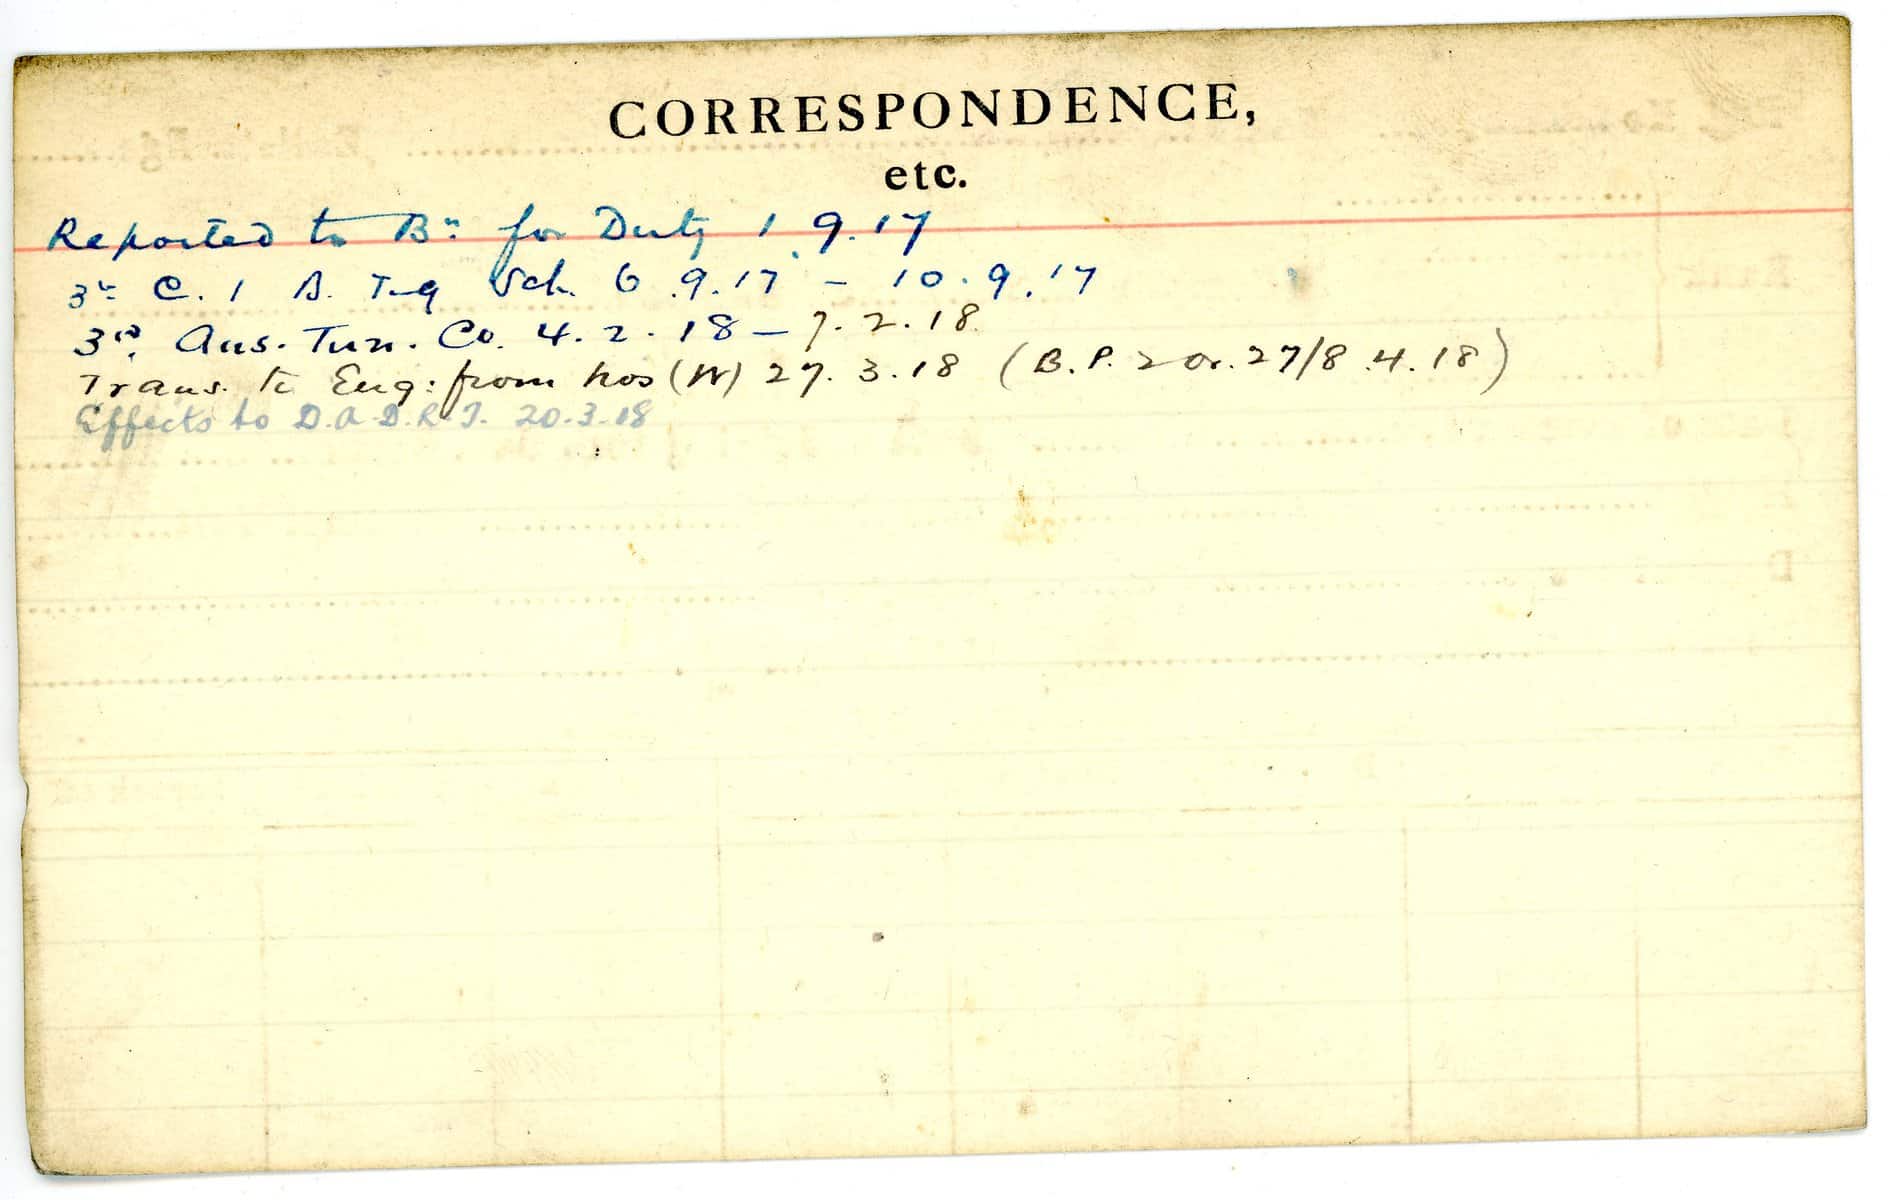 CORRESPONDENCE,
etc.
Reported to Bn for Duty 1.9.17
3rd C. 1 A. Tng Sch. 6.9.17 – 10.9.17
3rd Aus. Tun. Co. 4.2.18 – 7.2.18
Trans. to Eng: from hos (W) 27.3.18 (B.P. 2 Or. 27/8.4.18)
Effects to D.A.D.R.T. 20.3.18